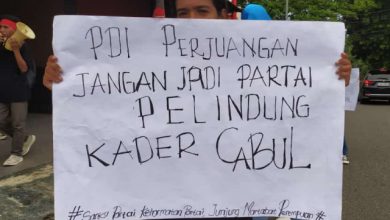 PDI PERJUANGAN
JANGAN JADI PARTAI
PELINDUNG
KADER CABUL
Partai Kehormatan Junjung Martabat Perempuan #